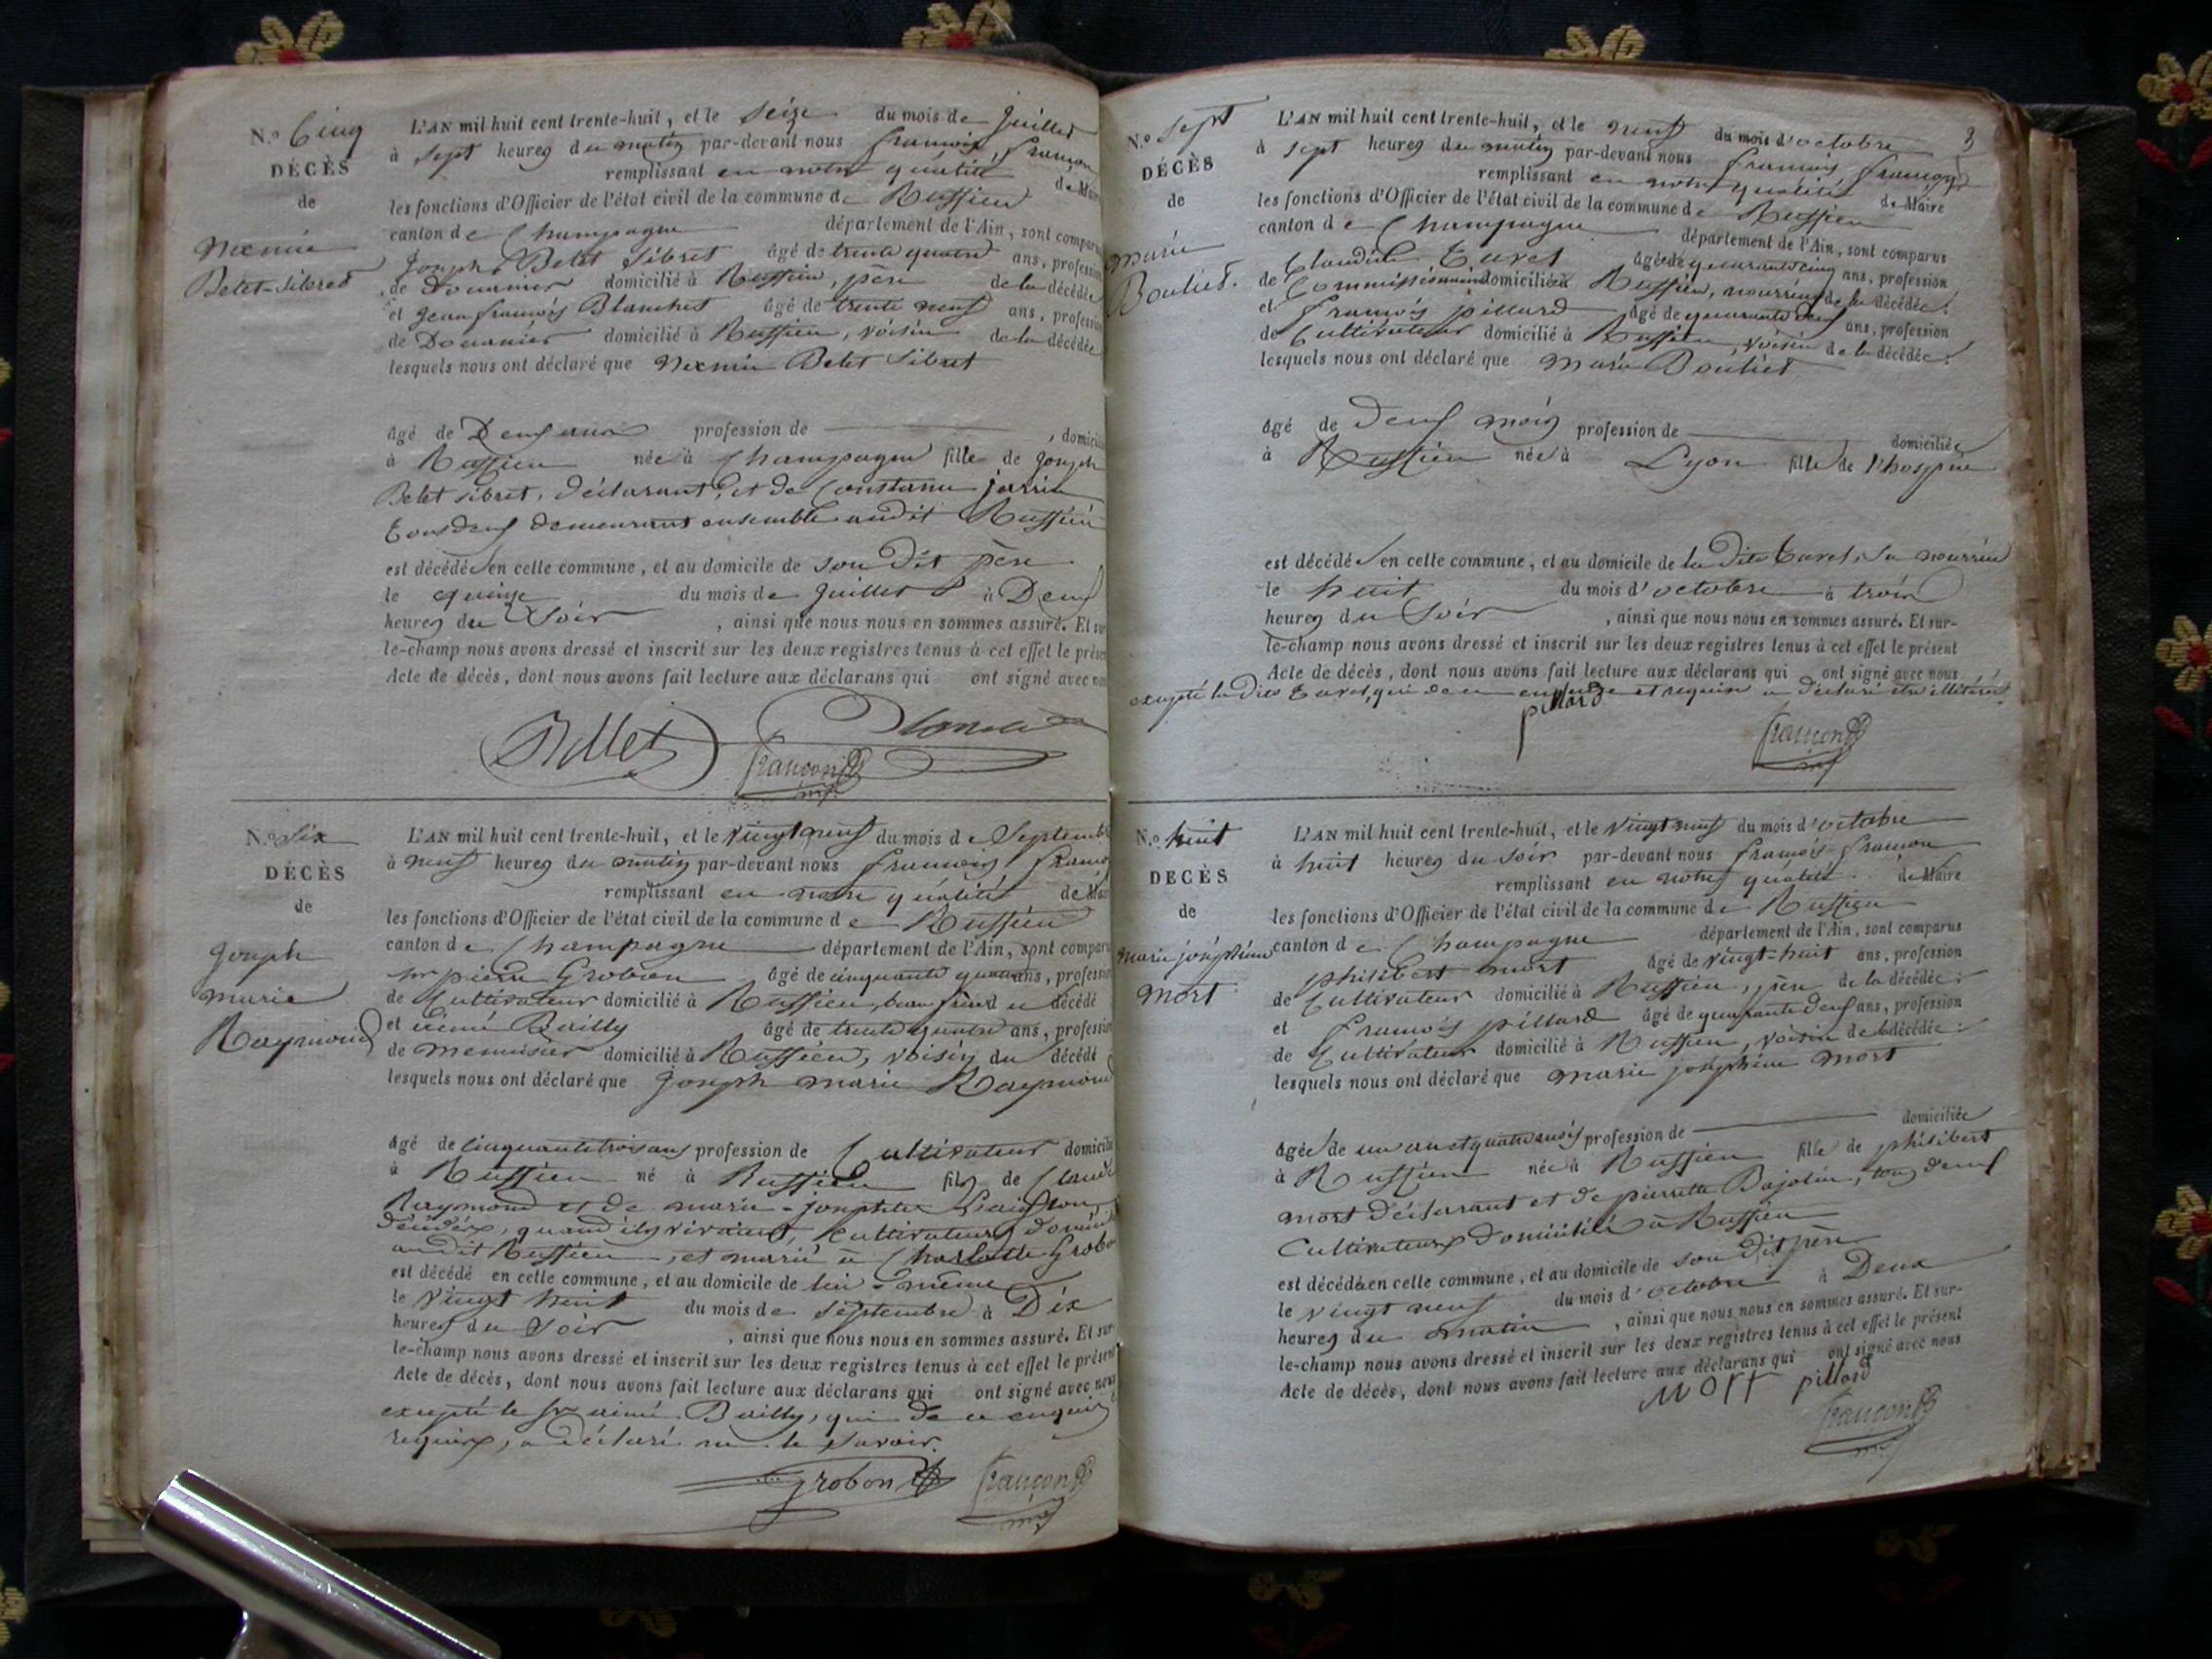 N.o Cinq
DÉCÈS
de
Noemie
Belet-Sibret
L'AN mil huit cent trente-huit, et le Seize du mois de Juillet
à sept heures du matin par-devant nous françois françon
remplissant en notre qualité de Maire
les fonctions d'Officier de l'état civil de la commune de Ruffieu
canton de Champagne département de l'Ain, sont comparus
Joseph Belet Sibret âgé de trente quatre ans, profession
de Douanier domicilié à Ruffieu, père de la décédée
et Jean françois Blanchet âgé de trente neuf ans, profession
de Douanier domicilié à Ruffieu, voisin de la décédée
lesquels nous ont déclaré que Noemie Belet Sibret
âgé de Deux ans profession de , domicili
à Ruffieu née à Champagne fille de Joseph
Belet Sibret, déclarant, et de Constance jarrin
tous deux demeurant ensemble audit Ruffieu
est décédée en cette commune, et au domicile de son dit père
le quinze du mois de Juillet à Deux
heures du Soir , ainsi que nous nous en sommes assuré. Et sur
le-champ nous avons dressé et inscrit sur les deux registres tenus à cet effet le présent
Acte de décès, dont nous avons fait lecture aux déclarans qui ont signé avec nous
Billet
françon
N.o Six
DÉCÈS
de
Joseph
marie
Raymond
L'AN mil huit cent trente-huit, et le vingt neuf du mois de Septembre
à neuf heures du matin par-devant nous françois françon
remplissant en notre qualité de Maire
les fonctions d'Officier de l'état civil de la commune de Ruffieu
canton de Champagne département de l'Ain, sont comparus
Sr pierre Grobon âgé de cinquante quatre ans, profession
de Cultivateur domicilié à Ruffieu, beau frère du décédé
et aimé Bailly âgé de trente quatre ans, profession
de menuisier domicilié à Ruffieu, voisin du décédé
lesquels nous ont déclaré que Joseph marie Raymond
âgé de cinquante trois ans profession de Cultivateur domicilié
à Ruffieu né à Ruffieu fils de Claude
Raymond et de marie-josephte
décédés, quand ils vivaient, Cultivateurs domiciliés
audit Ruffieu, et marié à Charlotte Grobon
est décédé en cette commune, et au domicile de lui-même
le vingt huit du mois de septembre à Dix
heures du Soir , ainsi que nous nous en sommes assuré. Et sur
le-champ nous avons dressé et inscrit sur les deux registres tenus à cet effet le présent
Acte de décès, dont nous avons fait lecture aux déclarans qui ont signé avec nous
excepté le Sr aimé Bailly, qui de ce enquis
requis, a déclaré ne le savoir.
Grobon françon
3
N.o Sept
DÉCÈS
de
marie
Bouliet.
L'AN mil huit cent trente-huit, et le neuf du mois d'octobre
à sept heures du matin par-devant nous françois françon
remplissant en notre qualité de Maire
les fonctions d'Officier de l'état civil de la commune de Ruffieu
canton de Champagne département de l'Ain, sont comparus
Claudine Curel âgée de quarante cinq ans, profession
de Commissionnaire domiciliée à Ruffieu, nourrice de la décédée
et françois pillard âgé de quarante deux ans, profession
de Cultivateur domicilié à Ruffieu, voisin de la décédée
lesquels nous ont déclaré que marie Bouliet
âgé de Deux mois profession de domiciliée
à Ruffieu née à Lyon fille de l'hospice
est décédée en cette commune, et au domicile de la dite Curel, sa nourrice
le huit du mois d'octobre à trois
heures du Soir , ainsi que nous nous en sommes assuré. Et sur-
le-champ nous avons dressé et inscrit sur les deux registres tenus à cet effet le présent
Acte de décès, dont nous avons fait lecture aux déclarans qui ont signé avec nous
excepté la dite Curel, qui de ce enquise et requise a déclaré être illitérée
pillard
françon
N.o huit
DÉCÈS
de
marie joséphine
mort
L'AN mil huit cent trente-huit, et le vingt neuf du mois d'octobre
à huit heures du soir par-devant nous françois françon
remplissant en notre qualité de Maire
les fonctions d'Officier de l'état civil de la commune de Ruffieu
canton de Champagne département de l'Ain, sont comparus
philibert mort âgé de vingt-huit ans, profession
de Cultivateur domicilié à Ruffieu, père de la décédée
et françois pillard âgé de quarante deux ans, profession
de Cultivateur domicilié à Ruffieu, voisin de la décédée
lesquels nous ont déclaré que marie joséphine mort
âgée de un an et quatre mois profession de domiciliée
à Ruffieu née à Ruffieu fille de philibert
mort déclarant et de pierrette Bajolin, tous deux
Cultivateurs domiciliés à Ruffieu
est décédée en cette commune, et au domicile de son dit père
le vingt neuf du mois d'octobre à Deux
heures du matin , ainsi que nous nous en sommes assuré. Et sur-
le-champ nous avons dressé et inscrit sur les deux registres tenus à cet effet le présent
Acte de décès, dont nous avons fait lecture aux déclarans qui ont signé avec nous
mort pillard
françon